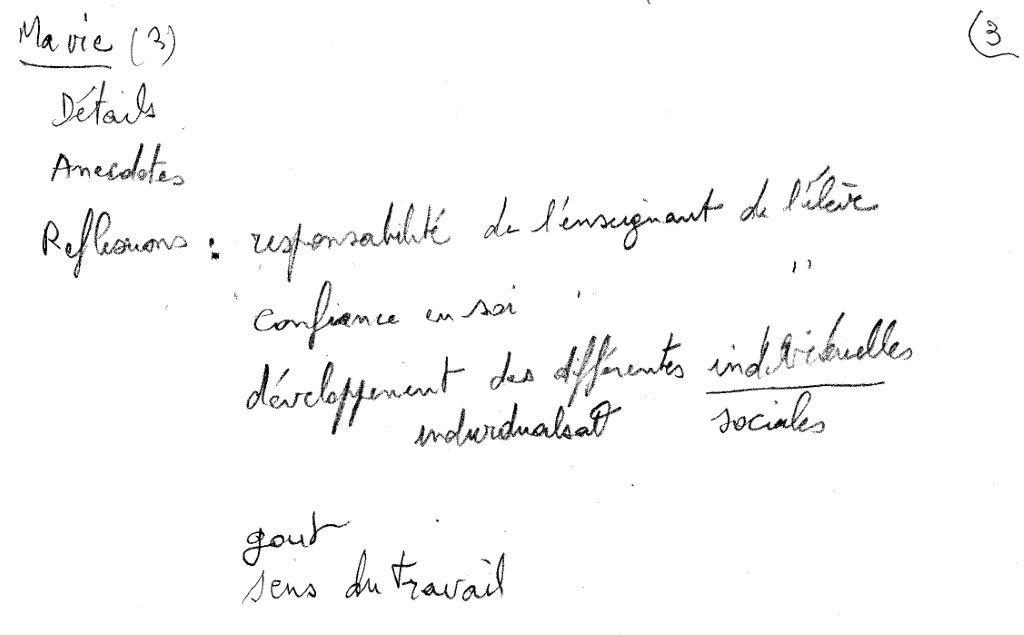 Ma vie (3) (3
Détails
Anecdotes
Reflexions : responsabilité de l'enseignant de l'élève
confiance en soi "
développement des différentes individuelles
individualsat° sociales
gout
sens du travail